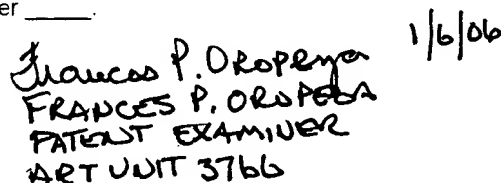 er _____.
Frances P. Oropeza 1/6/06
FRANCES P. OROPEZA
PATENT EXAMINER
ART UNIT 3766